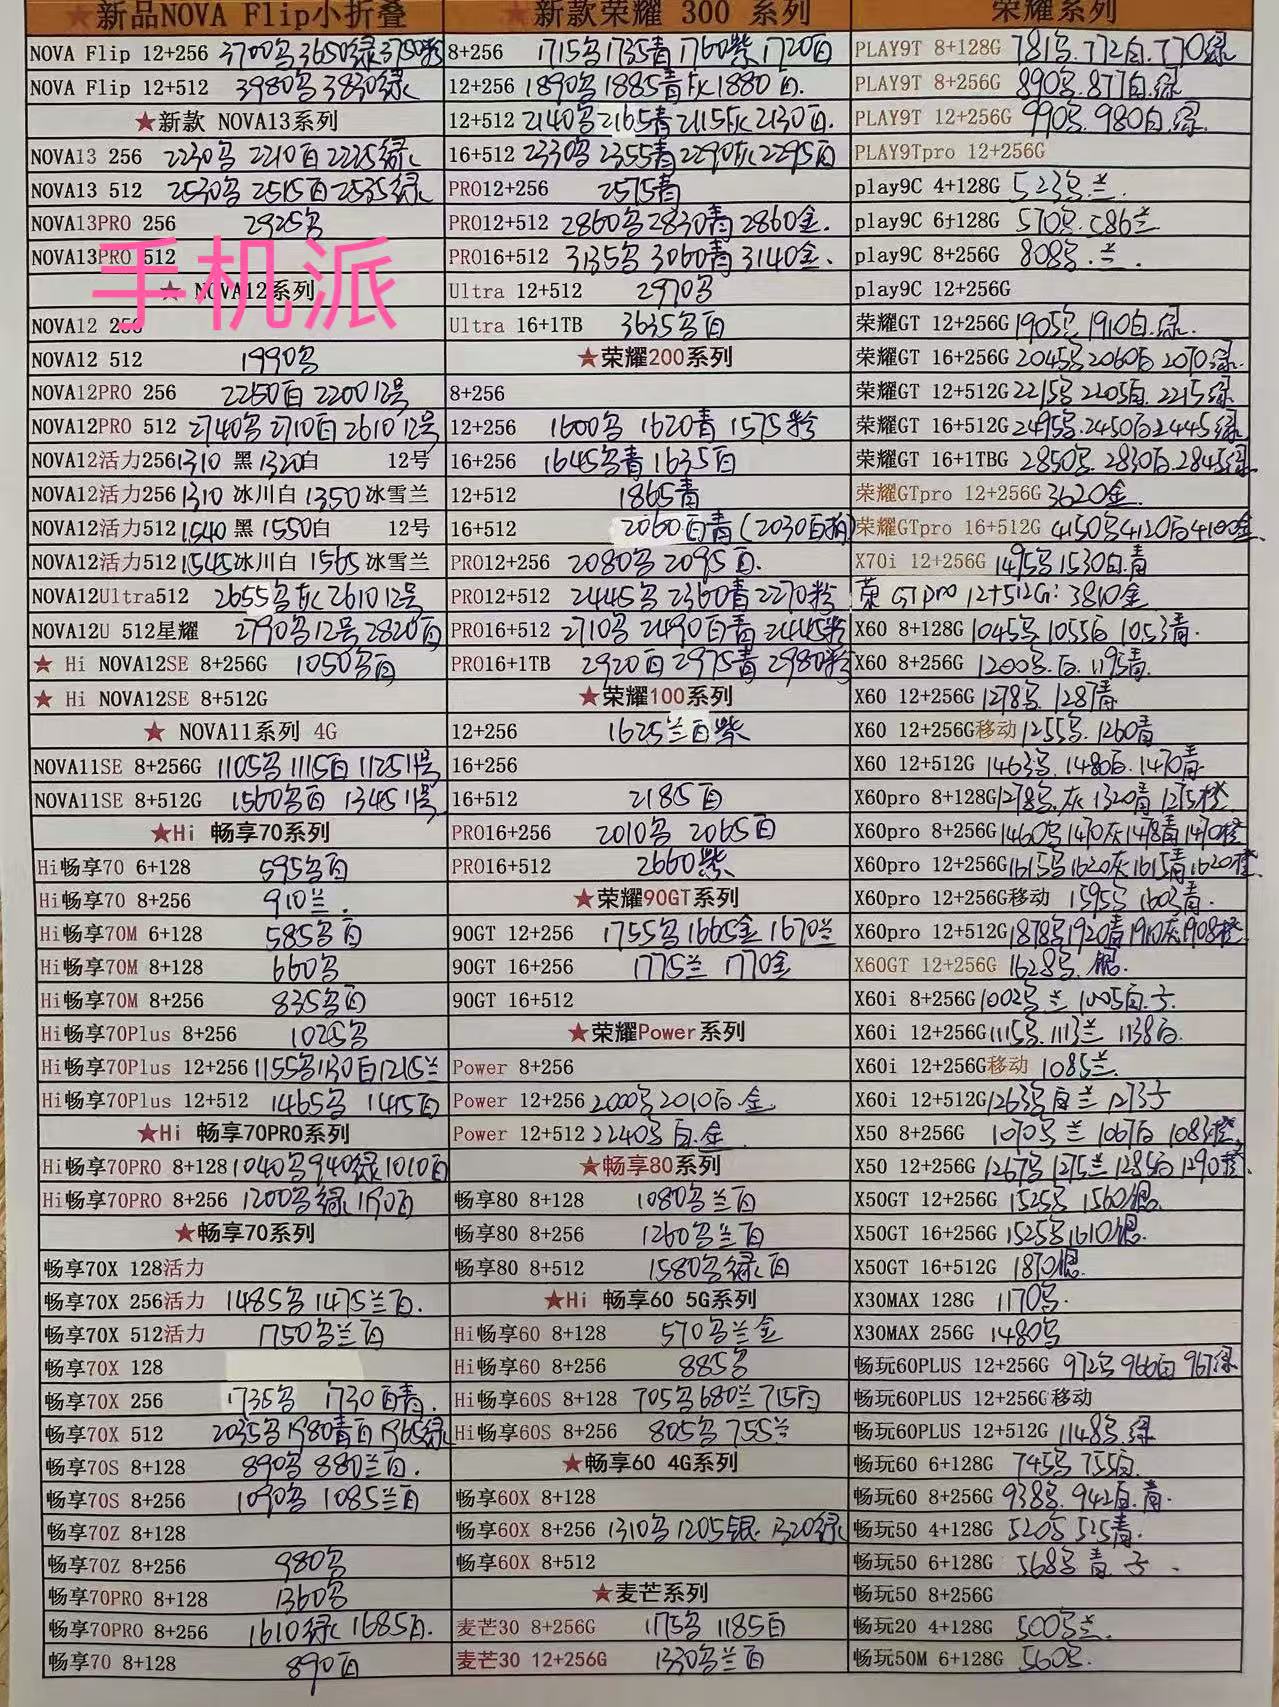 ★新品NOVA Flip小折叠
NOVA Flip 12+256 3700黑 3650绿 3750粉
NOVA Flip 12+512 3980黑 3830绿
★新款 NOVA13系列
NOVA13 256 2230黑 2210白 2225绿
NOVA13 512 2530黑 2515白 2535绿
NOVA13PRO 256 2925黑
NOVA13PRO 512
手机派
★ NOVA12系列
NOVA12 256
NOVA12 512 1990黑
NOVA12PRO 256 2250白 2200 12号
NOVA12PRO 512 2740黑 2710白 2610 12号
NOVA12活力256 1310 黑 1320白 12号
NOVA12活力256 1310 冰川白 1350 冰雪兰
NOVA12活力512 1540 黑 1550白 12号
NOVA12活力512 1545 冰川白 1565 冰雪兰
NOVA12Ultra512 2655黑灰 2610 12号
NOVA12U 512星耀 2790黑 12号 2820白
★ Hi NOVA12SE 8+256G 1050黑白
★ Hi NOVA12SE 8+512G
★ NOVA11系列 4G
NOVA11SE 8+256G 1105黑 1115白 1125 11号
NOVA11SE 8+512G 1560黑白 1345 11号
★Hi 畅享70系列
Hi畅享70 6+128 595黑白
Hi畅享70 8+256 910兰.
Hi畅享70M 6+128 585黑白
Hi畅享70M 8+128 660黑
Hi畅享70M 8+256 835黑白
Hi畅享70Plus 8+256 1025黑
Hi畅享70Plus 12+256 1155黑 1130白 1215兰
Hi畅享70Plus 12+512 1465黑 1415白
★Hi 畅享70PRO系列
Hi畅享70PRO 8+128 1040黑 940绿 1010白
Hi畅享70PRO 8+256 1200黑绿 1190白
★畅享70系列
畅享70X 128活力
畅享70X 256活力 1485黑 1475兰白.
畅享70X 512活力 1750黑兰白
畅享70X 128
畅享70X 256 1735黑 1730白青.
畅享70X 512 2035黑 1980青白 1965绿
畅享70S 8+128 890黑 880兰白.
畅享70S 8+256 1090黑 1085兰白
畅享70Z 8+128
畅享70Z 8+256 980黑
畅享70PRO 8+128 1360黑
畅享70PRO 8+256 1610绿 1685白.
畅享70 8+128 890白
★新款荣耀 300 系列
8+256 1715黑 1735青 1760紫 1720白
12+256 1890黑 1885青灰 1880白.
12+512 2140黑 2165青 2115灰 2130白.
16+512 2330黑 2355青 2290灰 2295白
PRO12+256 2575青
PRO12+512 2860黑 2830青 2860金.
PRO16+512 3135黑 3060青 3140金.
Ultra 12+512 2970黑
Ultra 16+1TB 3635黑白
★荣耀200系列
8+256
12+256 1600黑 1620青 1575粉
16+256 1645黑青 1635白
12+512 1865青
16+512 2060白青(2030白拆)
PRO12+256 2080黑 2095白.
PRO12+512 2445黑 2360青 2270粉
PRO16+512 2710黑 2490白青 2445粉
PRO16+1TB 2920白 2975青 2980粉
★荣耀100系列
12+256 1625兰白紫
16+256
16+512 2185白
PRO16+256 2010黑 2065白
PRO16+512 2660紫
★荣耀90GT系列
90GT 12+256 1755黑 1665金 1670兰
90GT 16+256 1775兰 1770金
90GT 16+512
★荣耀Power系列
Power 8+256
Power 12+256 2000黑 2010白.金
Power 12+512 2240黑 白.金
★畅享80系列
畅享80 8+128 1080黑兰白
畅享80 8+256 1260黑兰白
畅享80 8+512 1580黑绿白
★Hi 畅享60 5G系列
Hi畅享60 8+128 570黑兰金
Hi畅享60 8+256 885黑
Hi畅享60S 8+128 705黑 680兰 715白
Hi畅享60S 8+256 805黑 755兰
★畅享60 4G系列
畅享60X 8+128
畅享60X 8+256 1310黑 1205银. 1320绿
畅享60X 8+512
★麦芒系列
麦芒30 8+256G 1175黑 1185白
麦芒30 12+256G 1330黑兰白
荣耀系列
PLAY9T 8+128G 781黑. 772白. 770绿
PLAY9T 8+256G 890黑. 877白.绿
PLAY9T 12+256G 990黑. 980白.绿
PLAY9Tpro 12+256G
play9C 4+128G 523黑兰.
play9C 6+128G 570黑. 586兰
play9C 8+256G 808黑.兰.
play9C 12+256G
荣耀GT 12+256G 1905黑 1910白.绿.
荣耀GT 16+256G 2045黑 2060白 2070绿.
荣耀GT 12+512G 2215黑 2205白. 2215绿
荣耀GT 16+512G 2495黑. 2450白 2445绿
荣耀GT 16+1TBG 2850黑. 2830白. 2845绿
荣耀GTpro 12+256G 3620金.
荣耀GTpro 16+512G 4150黑 4120白 4100金.
X70i 12+256G 1495黑 1530白.青
荣 GTpro 12+512G: 3810金
X60 8+128G 1045黑 1055白 1053青.
X60 8+256G 1200黑.白. 1195青.
X60 12+256G 1278黑. 1287青
X60 12+256G移动 1255黑. 1260青
X60 12+512G 1463黑. 1480白. 1470青
X60pro 8+128G 1278黑.灰 1320青 1275橙
X60pro 8+256G 1460黑 1470灰 1478青 1470橙
X60pro 12+256G 1615黑 1620灰 1615青 1620橙
X60pro 12+256G移动 1595黑 1603青.
X60pro 12+512G 1878黑 1920青 1910灰 1908橙
X60GT 12+256G 1628黑.银.
X60i 8+256G 1002黑.兰 1005白.子.
X60i 12+256G 1115黑. 1113兰 1138白.
X60i 12+256G移动 1085兰.
X60i 12+512G 1263黑.白兰 1273子
X50 8+256G 1070黑 兰 1067白 1083橙
X50 12+256G 1267黑 1275兰 1285白 1290橙.
X50GT 12+256G 1525黑 1560银.
X50GT 16+256G 1525黑 1610银.
X50GT 16+512G 1870银.
X30MAX 128G 1170黑.
X30MAX 256G 1480黑
畅玩60PLUS 12+256G 972黑 966白 967绿
畅玩60PLUS 12+256G移动
畅玩60PLUS 12+512G 1148黑.绿
畅玩60 6+128G 745黑 755白.
畅玩60 8+256G 938黑. 942白.青.
畅玩50 4+128G 520黑 525青.
畅玩50 6+128G 568黑 青. 子.
畅玩50 8+256G
畅玩20 4+128G 500黑兰.
畅玩50M 6+128G 560黑.